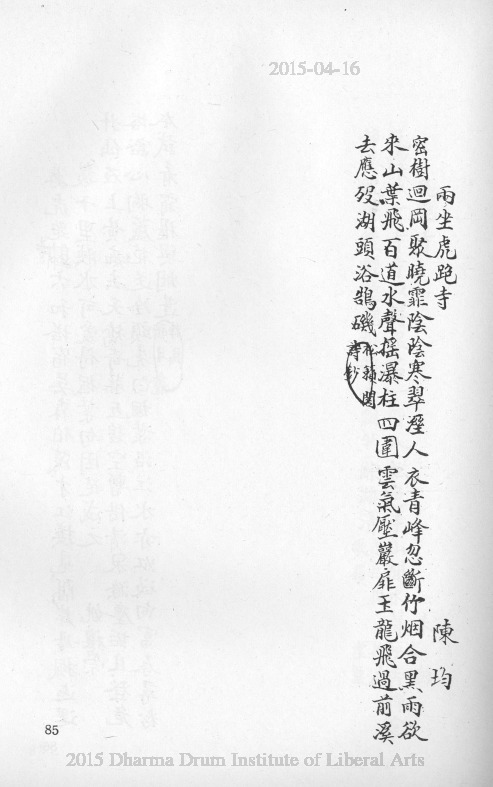 2015-04-16
雨坐虎跑寺 陳均
密樹迴岡聚曉霏陰陰寒翠溼人衣青峰忽斷竹烟合黑雨欲
來山葉飛百道水聲搖瀑柱四圍雲氣壓巖扉玉龍飛過前溪
去應歿湖頭浴鵠磯松籟閣
詩鈔
85
2015 Dharma Drum Institute of Liberal Arts